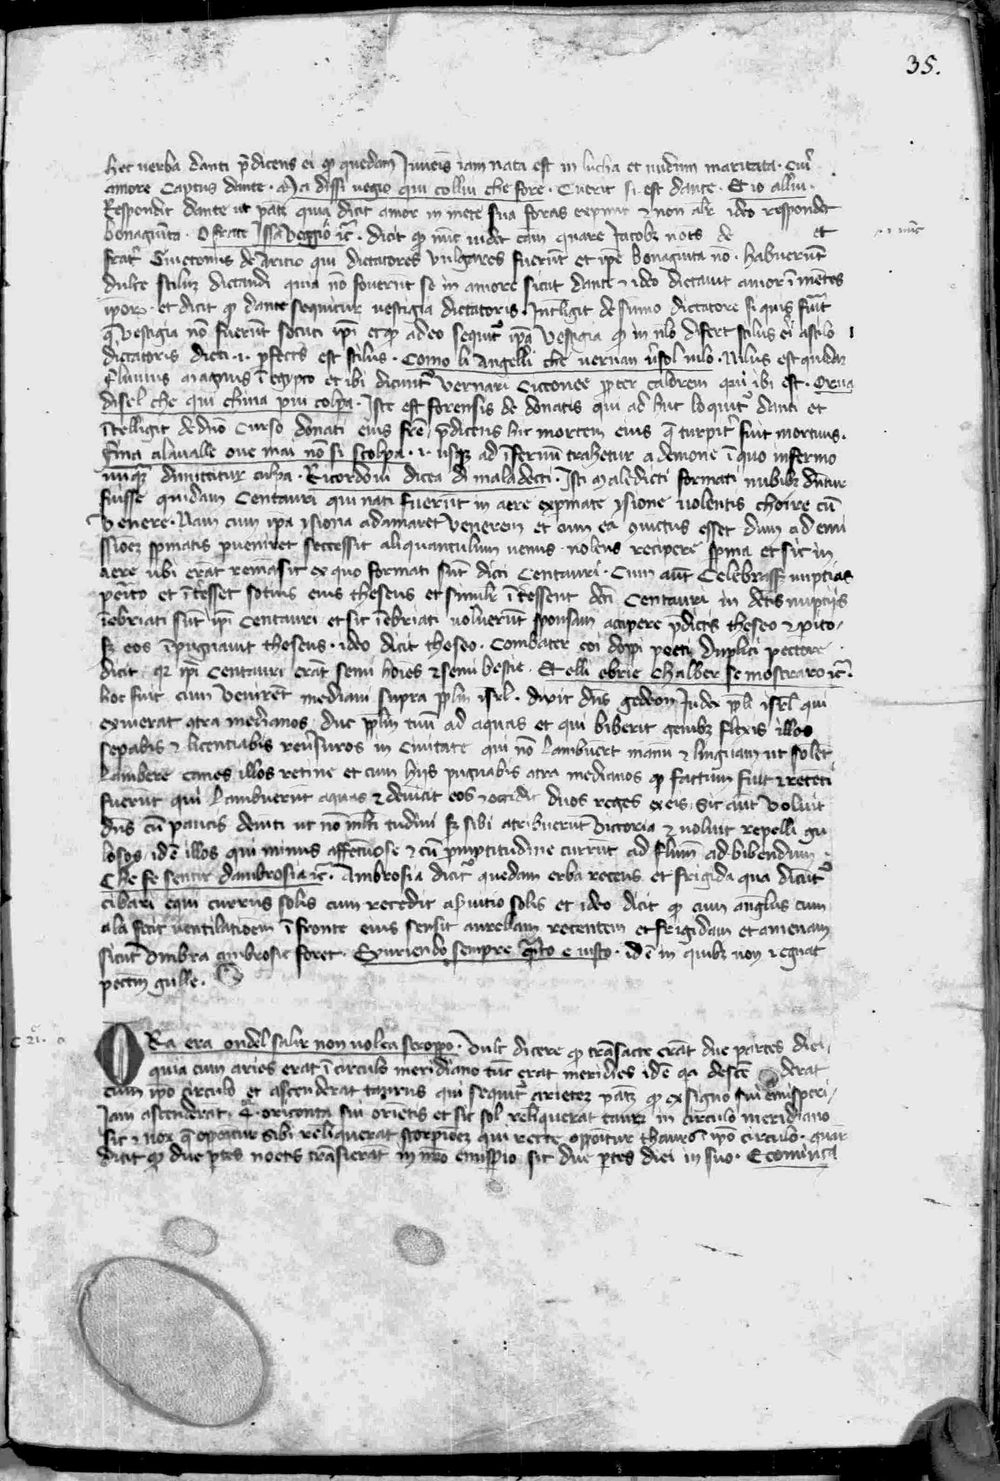 35.
hec verba danti p̄dicens ei qp quedam Juvēis iam nata est in lucha et nudum maritata. Cuiꝰ
amore Captus dante. Ma dissi vegio qui collui che fore. Cuerit si est dante. Et io allui.
Respondit dante ut pat quia dicit amor in mēte sua foras exprimit & non alr ideo respondet
bonagiūta. O frate Issa veggio ic̄. dicit qp nūc videt cām quare Jacobꝫ notꝰ de et
frat Guictonus de Aritio qui dictatores vulgares fuerūt et ipe bonagiunta nō. habuerūt
dulce stiluꝫ dictandi quia nō foverūt se in amore sicut dante & ideo dictavit amor ī mētes
ipoꝝ. et dicit qp dante sequitur vestigia dictatoris. Intligit de sumo dictatore si quis fuīt
q̄ vestigia nō fuerūt secuti ipi etqp adeo sequitꝰ ipa vestigia qp in nlo difert stilus ei astilo
dictatoris dicti. i. pfectꝰ est stilus. Como li angelli che vernan vsol nilo. Nilus est quidā
fluvius magnus ī egypto et ibi dicūtꝰ vernari Ciconee ppter calorem qui ibi est. Orva
disel che qui china piu colpa. Iste est forensis de donatis qui ad huc loquitꝰ danti et
ītelligit de dno Curso donati eius frē, p̄dicens huc mortem eius q̄ turpitꝰ fuit mortuus.
Inci alavalle ove mai nō si scolpa. i. usqꝫ ad ifernū trahetur a demone ī quo inferno
nūqꝫ dimittitur culpa. Ricordovi dicea di maladecti. Isti maledicti formati nubibꝫ dn̄tur
fuisse quidam Centauri qui nati fuerūt in aere expmate ysione volentis choire cū
Venere. Nam cum ipa ysiona adamaret Venerem et cum ea cōiūctus esset dum ad emi
ssioēꝫ spmatis pueniret secessit aliquantulum venus. nolens recipere spma et sic in
aere ubi erāt remāsit ex quo formati sūt dicti Centauri. Cum aūt Celebrassꝫ nuptias
peīto et ītesset sotius eius theseus et similr ītessent dcti Centauri in dctis nuptiis
īebriati sūt ipi Centauri et sic īebriati voluerūt sponsam accipere p̄dictis theseo & pito,
sꝫ eos īpugnavit theseus. ideo dicit theseo. Combater coi doppi pecti duplici pectore
dicit qꝛ ipi Centauri erāt semi hoies & semi bestie. Et elli ebrie Chalber se mostraro ic̄.
hoc fuit cum venirēt mediani supra pplm isrl. dixit dn̄s gedeon Judex ppli isrl qui
exiverat ꝯtra medianos. duc pplm tuū ad aquas et qui biberit genibꝫ flexis illos
sepabis & licentiabis reūsuros in Civitate qui nō lambuerit manu & linguam ut solet
lambere canes illos retine et cum hiis pugnabis ꝯtra medianos qp factum fuit & recti
fuerūt qui lambuerūt aquas & devicit eos & occidit duos reges ex eis. Sic aūt voluit
dn̄s cū paucis devicti ut nō mlti tudini sꝫ sibi atribuerūt victoria & voluit repelli gu
losos. idē illos qui minus affectuose & cū pmptitudine currūt ad flum̄ ad bibendum.
Che fe sentir dambrosia ic̄. Ambrosia dicitꝰ quedam erba recens et frigida qua dicūtꝰ
cibari equi currus solis cum recedit asvitio solis et ideo dicit qp cum anglus cum
ala fecit ventilatioēm ī fronte eius sensit aurellam recentem et frigidam et amenam
sicut Ombra ambrosie foret. Exuriendo sempre qto e iusto. idē in quibꝫ non regnat
pctm gulle.
C 21.
ORa era ondel salir non volea storppo. Vult dicere qp trāsacte erāt due partes diei,
quia cum aries erat ī circulo meridiano tūc erat meridies idē qa descē derat
cum ipo circulo et ascenderat taurus qui sequitꝰ arieteꝫ patꝫ qp ex signo sui emisperi,
Jam ascenderat. E. oriconta sui orietis et sic sol reliquerat tauꝝ in circulo meridiano
sic & nox q̄ opoītur sibi reliquerat scorpioēꝫ qui recte oppoītur thauro ī ipo circulo. quar
dicit qp due ptes noctis trāsierāt in nro emisperio sic due ptes diei in suo. E comīcia